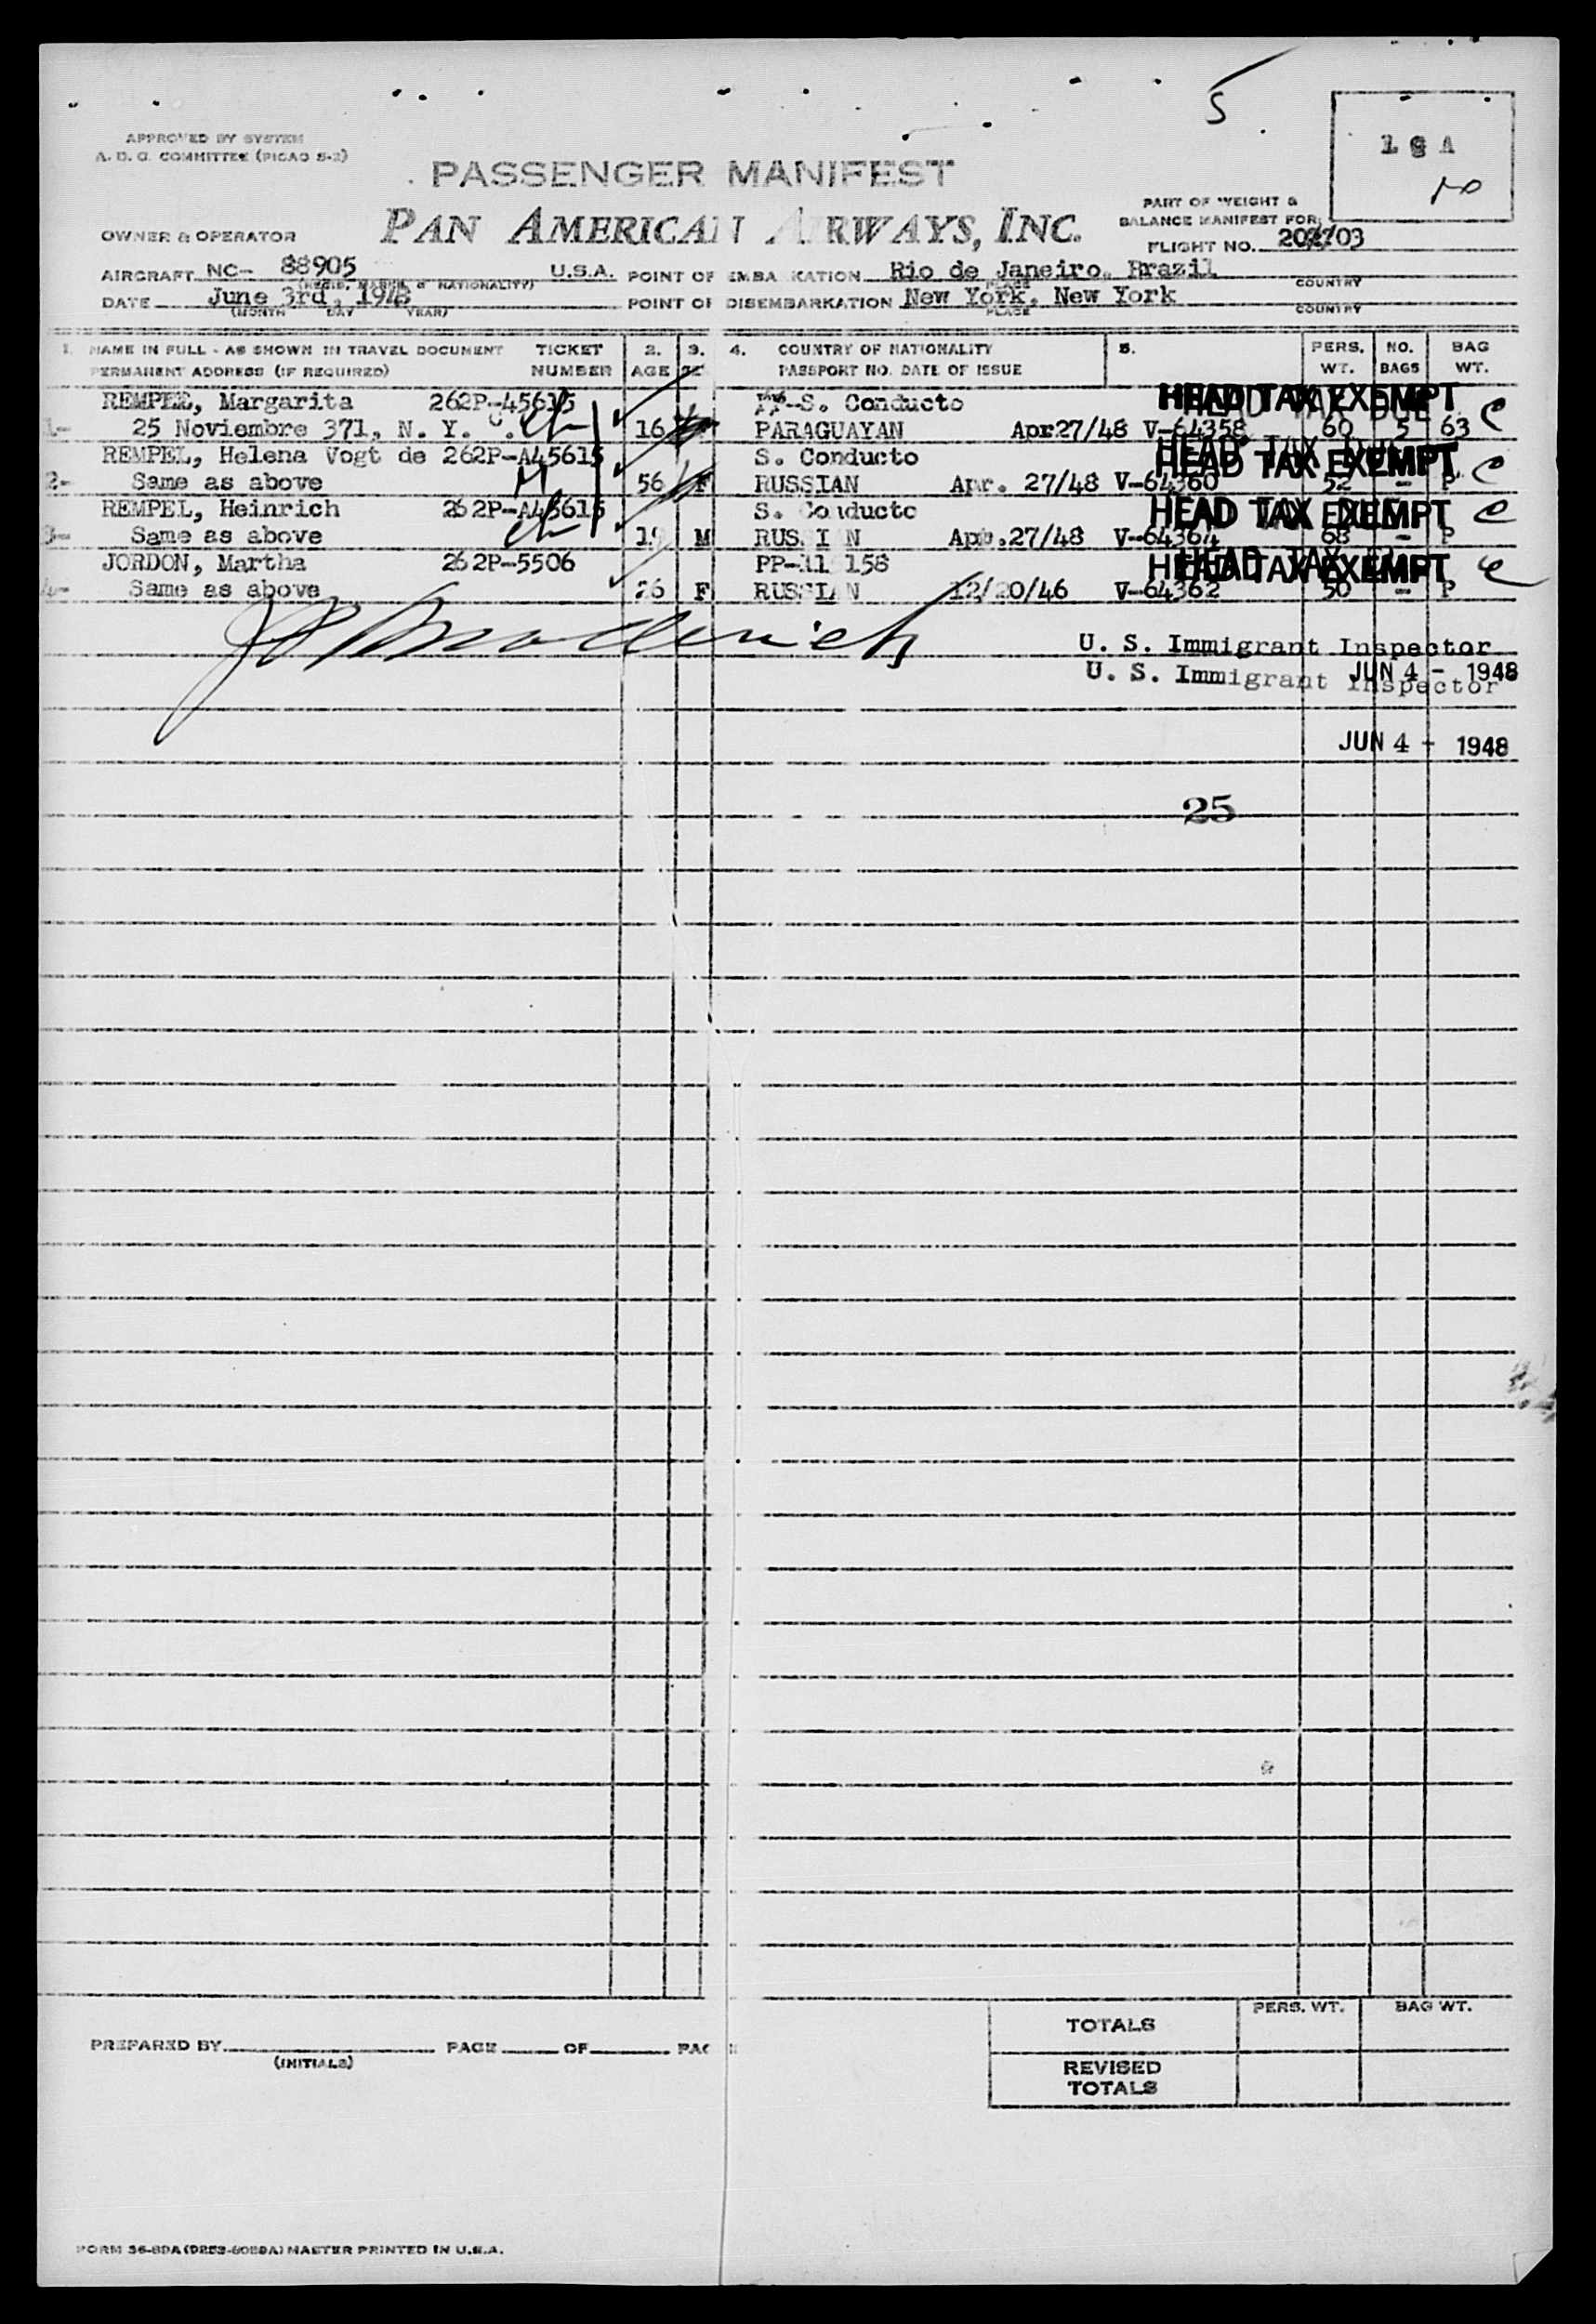 5
APPROVED BY SYSTEM
A. D. C. COMMITTEE (PICAO S-2)
PASSENGER MANIFEST
PART OF WEIGHT &
BALANCE MANIFEST FOR
OWNER & OPERATOR PAN AMERICAN AIRWAYS, INC. FLIGHT NO.
AIRCRAFT NC- 88905 U.S.A. POINT OF EMBARKATION Rio de Janeiro. Brazil
(REGIS. MARKS & NATIONALITY) PLACE COUNTRY
DATE June 3rd, 1948 POINT OF DISEMBARKATION New York, New York
(MONTH DAY YEAR) PLACE COUNTRY
1. NAME IN FULL - AS SHOWN IN TRAVEL DOCUMENT TICKET 2. 3. 4. COUNTRY OF NATIONALITY 5. PERS. NO. BAG
PERMANENT ADDRESS (IF REQUIRED) NUMBER AGE PASSPORT NO. DATE OF ISSUE WT. BAGS WT.
REMPEL, Margarita 262P-45615 S. Conducto HEAD TAX EXEMPT
1- 25 Noviembre 371, N. Y. 16 PARAGUAYAN Apr27/48 V-64358 60 5 63
REMPEL, Helena Vogt de 262P-A45615 S. Conducto HEAD TAX EXEMPT
2- Same as above 56 F RUSSIAN Apr. 27/48 V-64360 52 - P
REMPEL, Heinrich 262P-A45615 S. Conducto HEAD TAX EXEMPT
3- Same as above 19 M RUSSIAN Apr.27/48 V-64364 68 - P
JORDON, Martha 262P-5506 158 HEAD TAX EXEMPT
4- Same as above 26 F RUSSIAN 12/20/46 V-64362 50 - P
U. S. Immigrant Inspector
U. S. Immigrant Inspector JUN 4 - 1948
JUN 4 - 1948
25
TOTALS PERS. WT. BAG WT.
PREPARED BY PAGE OF
(INITIALS)
REVISED
TOTALS
MASTER PRINTED IN U.S.A.